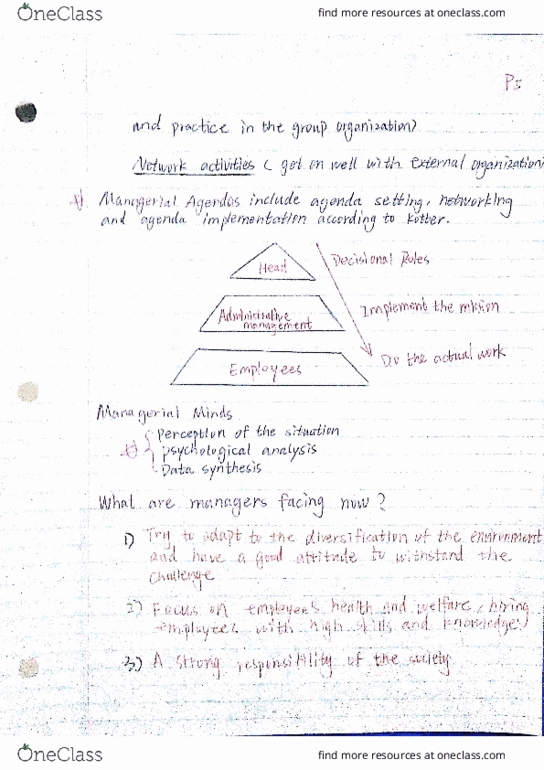 OneClass
find more resources at oneclass.com
P5
and practice in the group organization)
Network activities ( get on well with external organization
Managerial Agendas include agenda setting, networking
and agenda implementation according to Kotter.
Head
Decisional Roles
Administrative
management
Implement the mission
Employees
Do the actual work
Managerial Minds
Perception of the situation
psychological analysis
Data synthesis
What are managers facing now?
1) Try to adapt to the diversification of the environment
and have a good attitude to withstand the
challenge
2) Focus on employees health and welfare, hiring
employees with high skills and knowledge
3) A strong responsibility of the society
OneClass
find more resources at oneclass.com